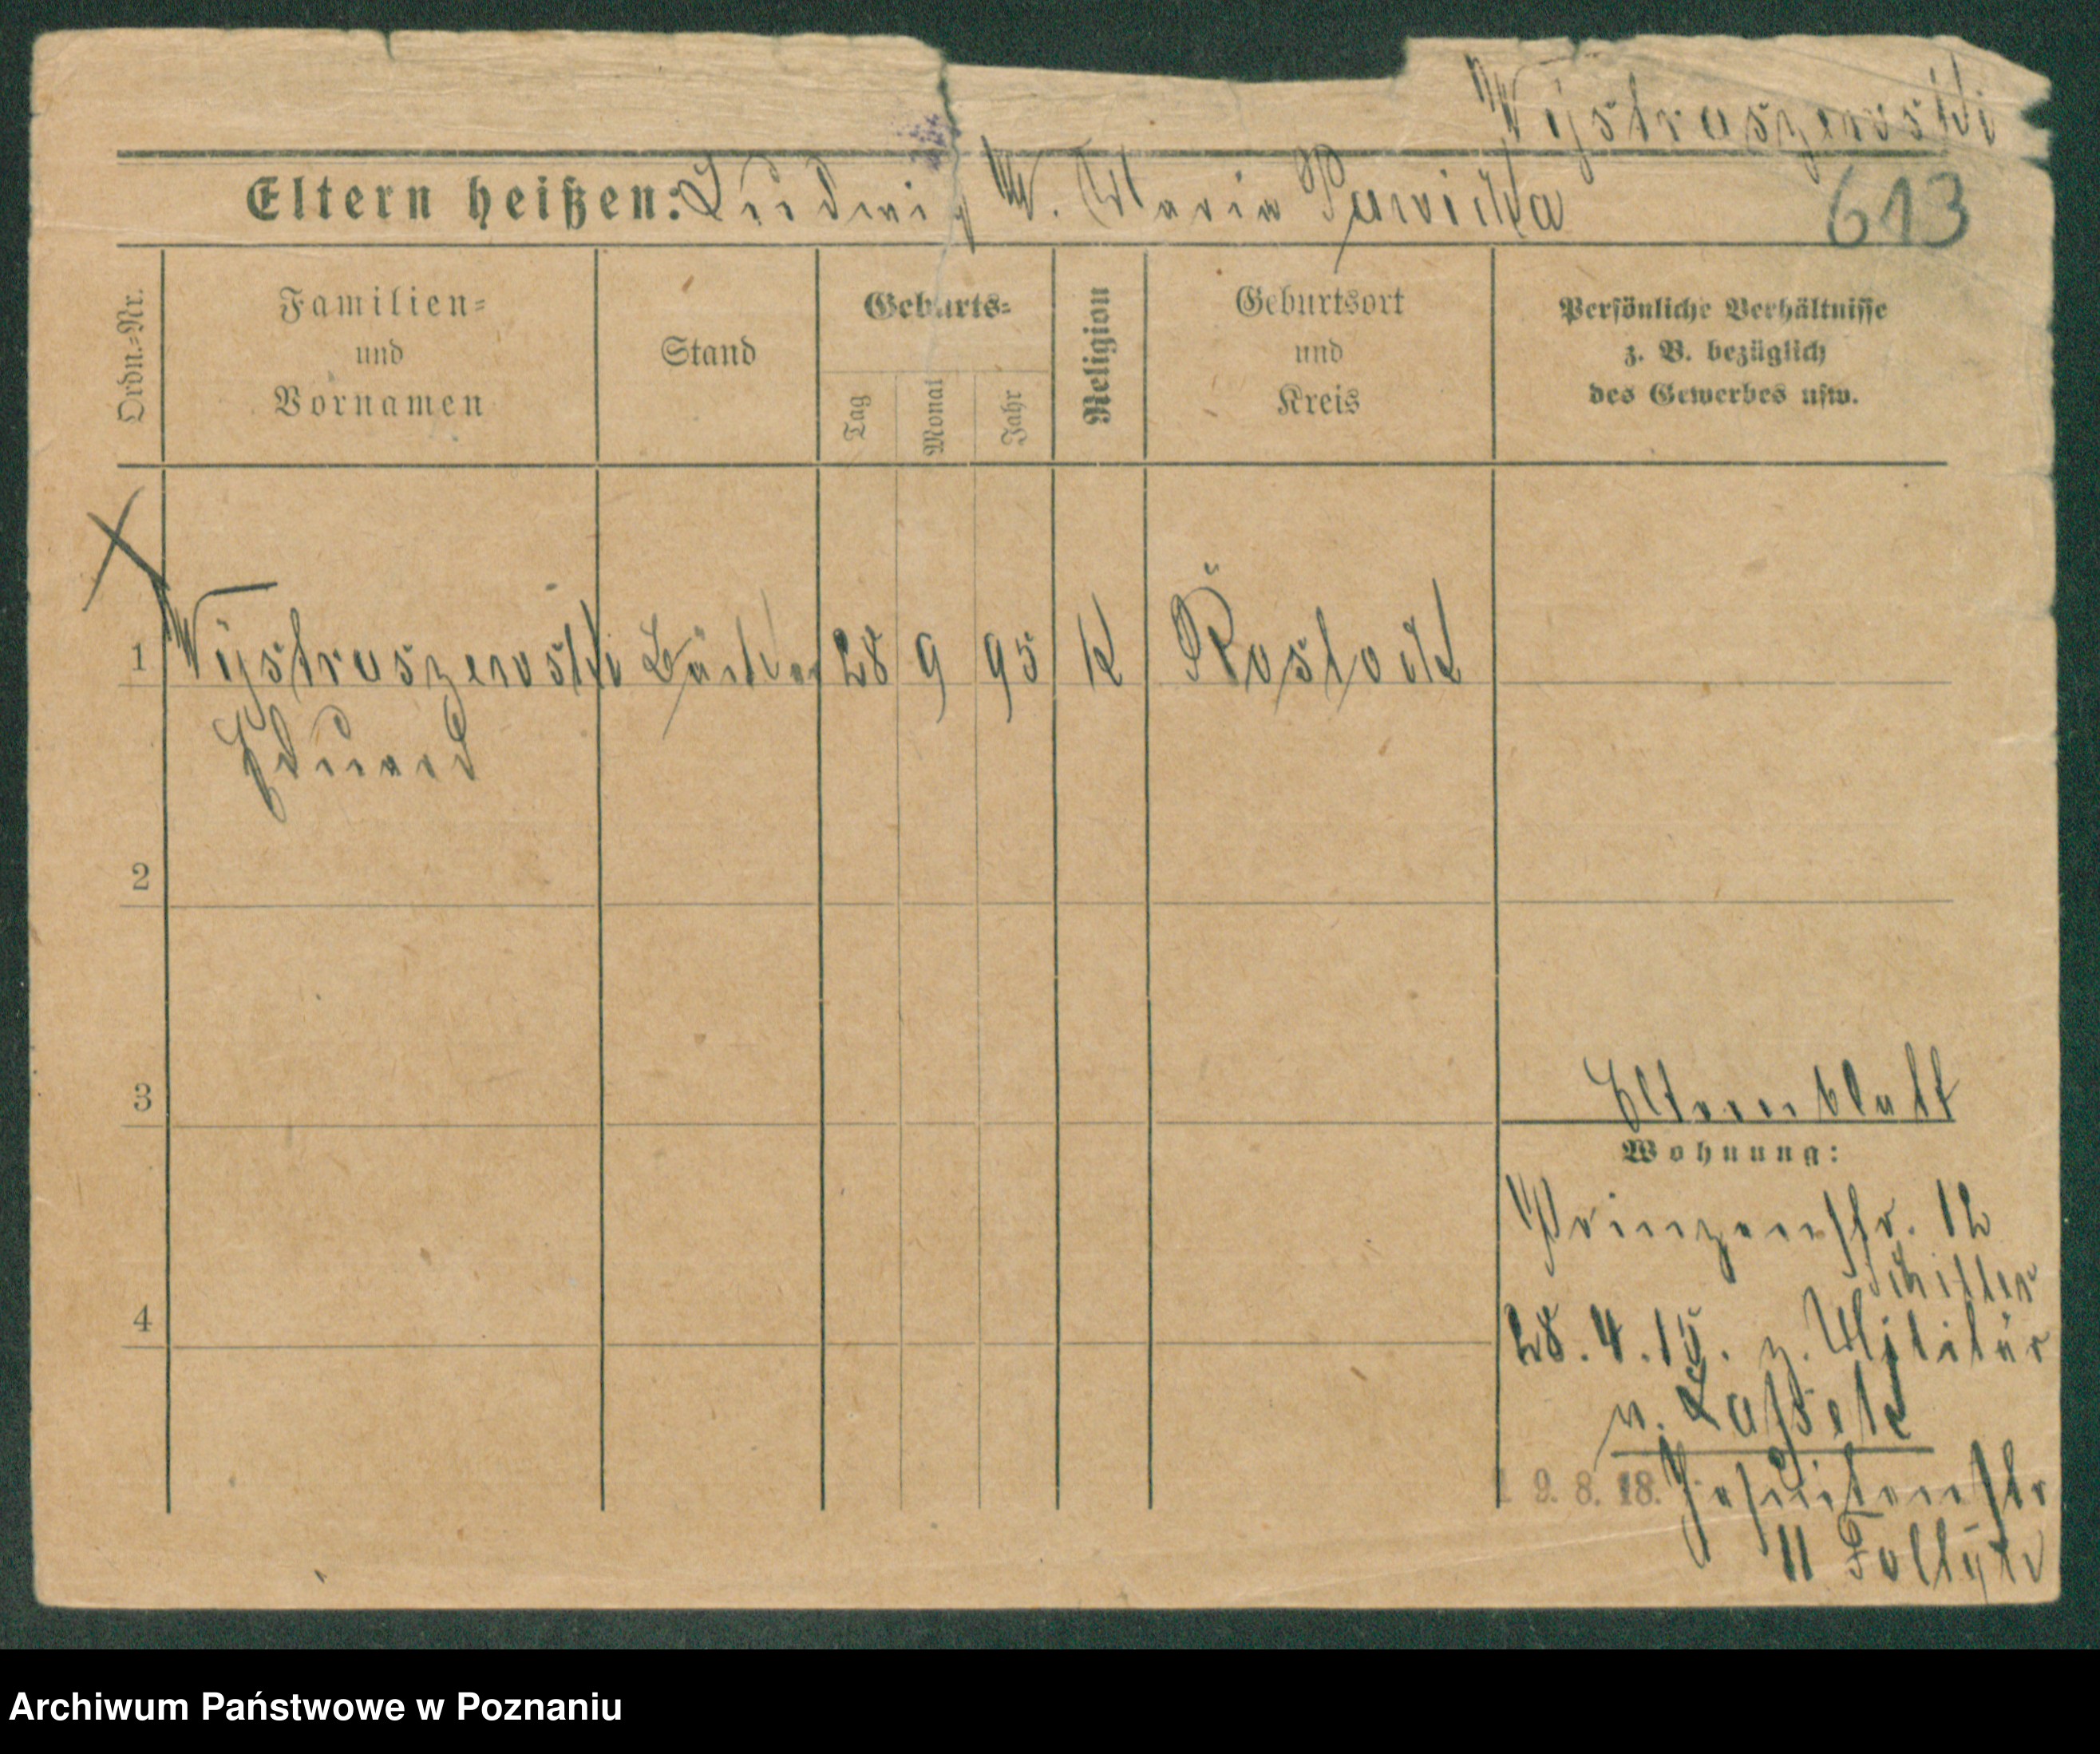 Wystraszewski
Eltern heißen: Ludwig W. Maria Pawicka
613
Ordn.-Nr.
Familien=
und
Vornamen
Stand
Geburts=
Tag
Monat
Jahr
Religion
Geburtsort
und
Kreis
Persönliche Verhältnisse
z. B. bezüglich
des Gewerbes usw.
1 Wystraszewski Bäcker 28 9 95 k Rostock
Eduard
2
3
Elternblatt
Wohnung:
Prinzenstr. 12
Schiller
4
28.4.15. z. Militär
n.
19.8.18. Jesuitenstr
11
Archiwum Państwowe w Poznaniu